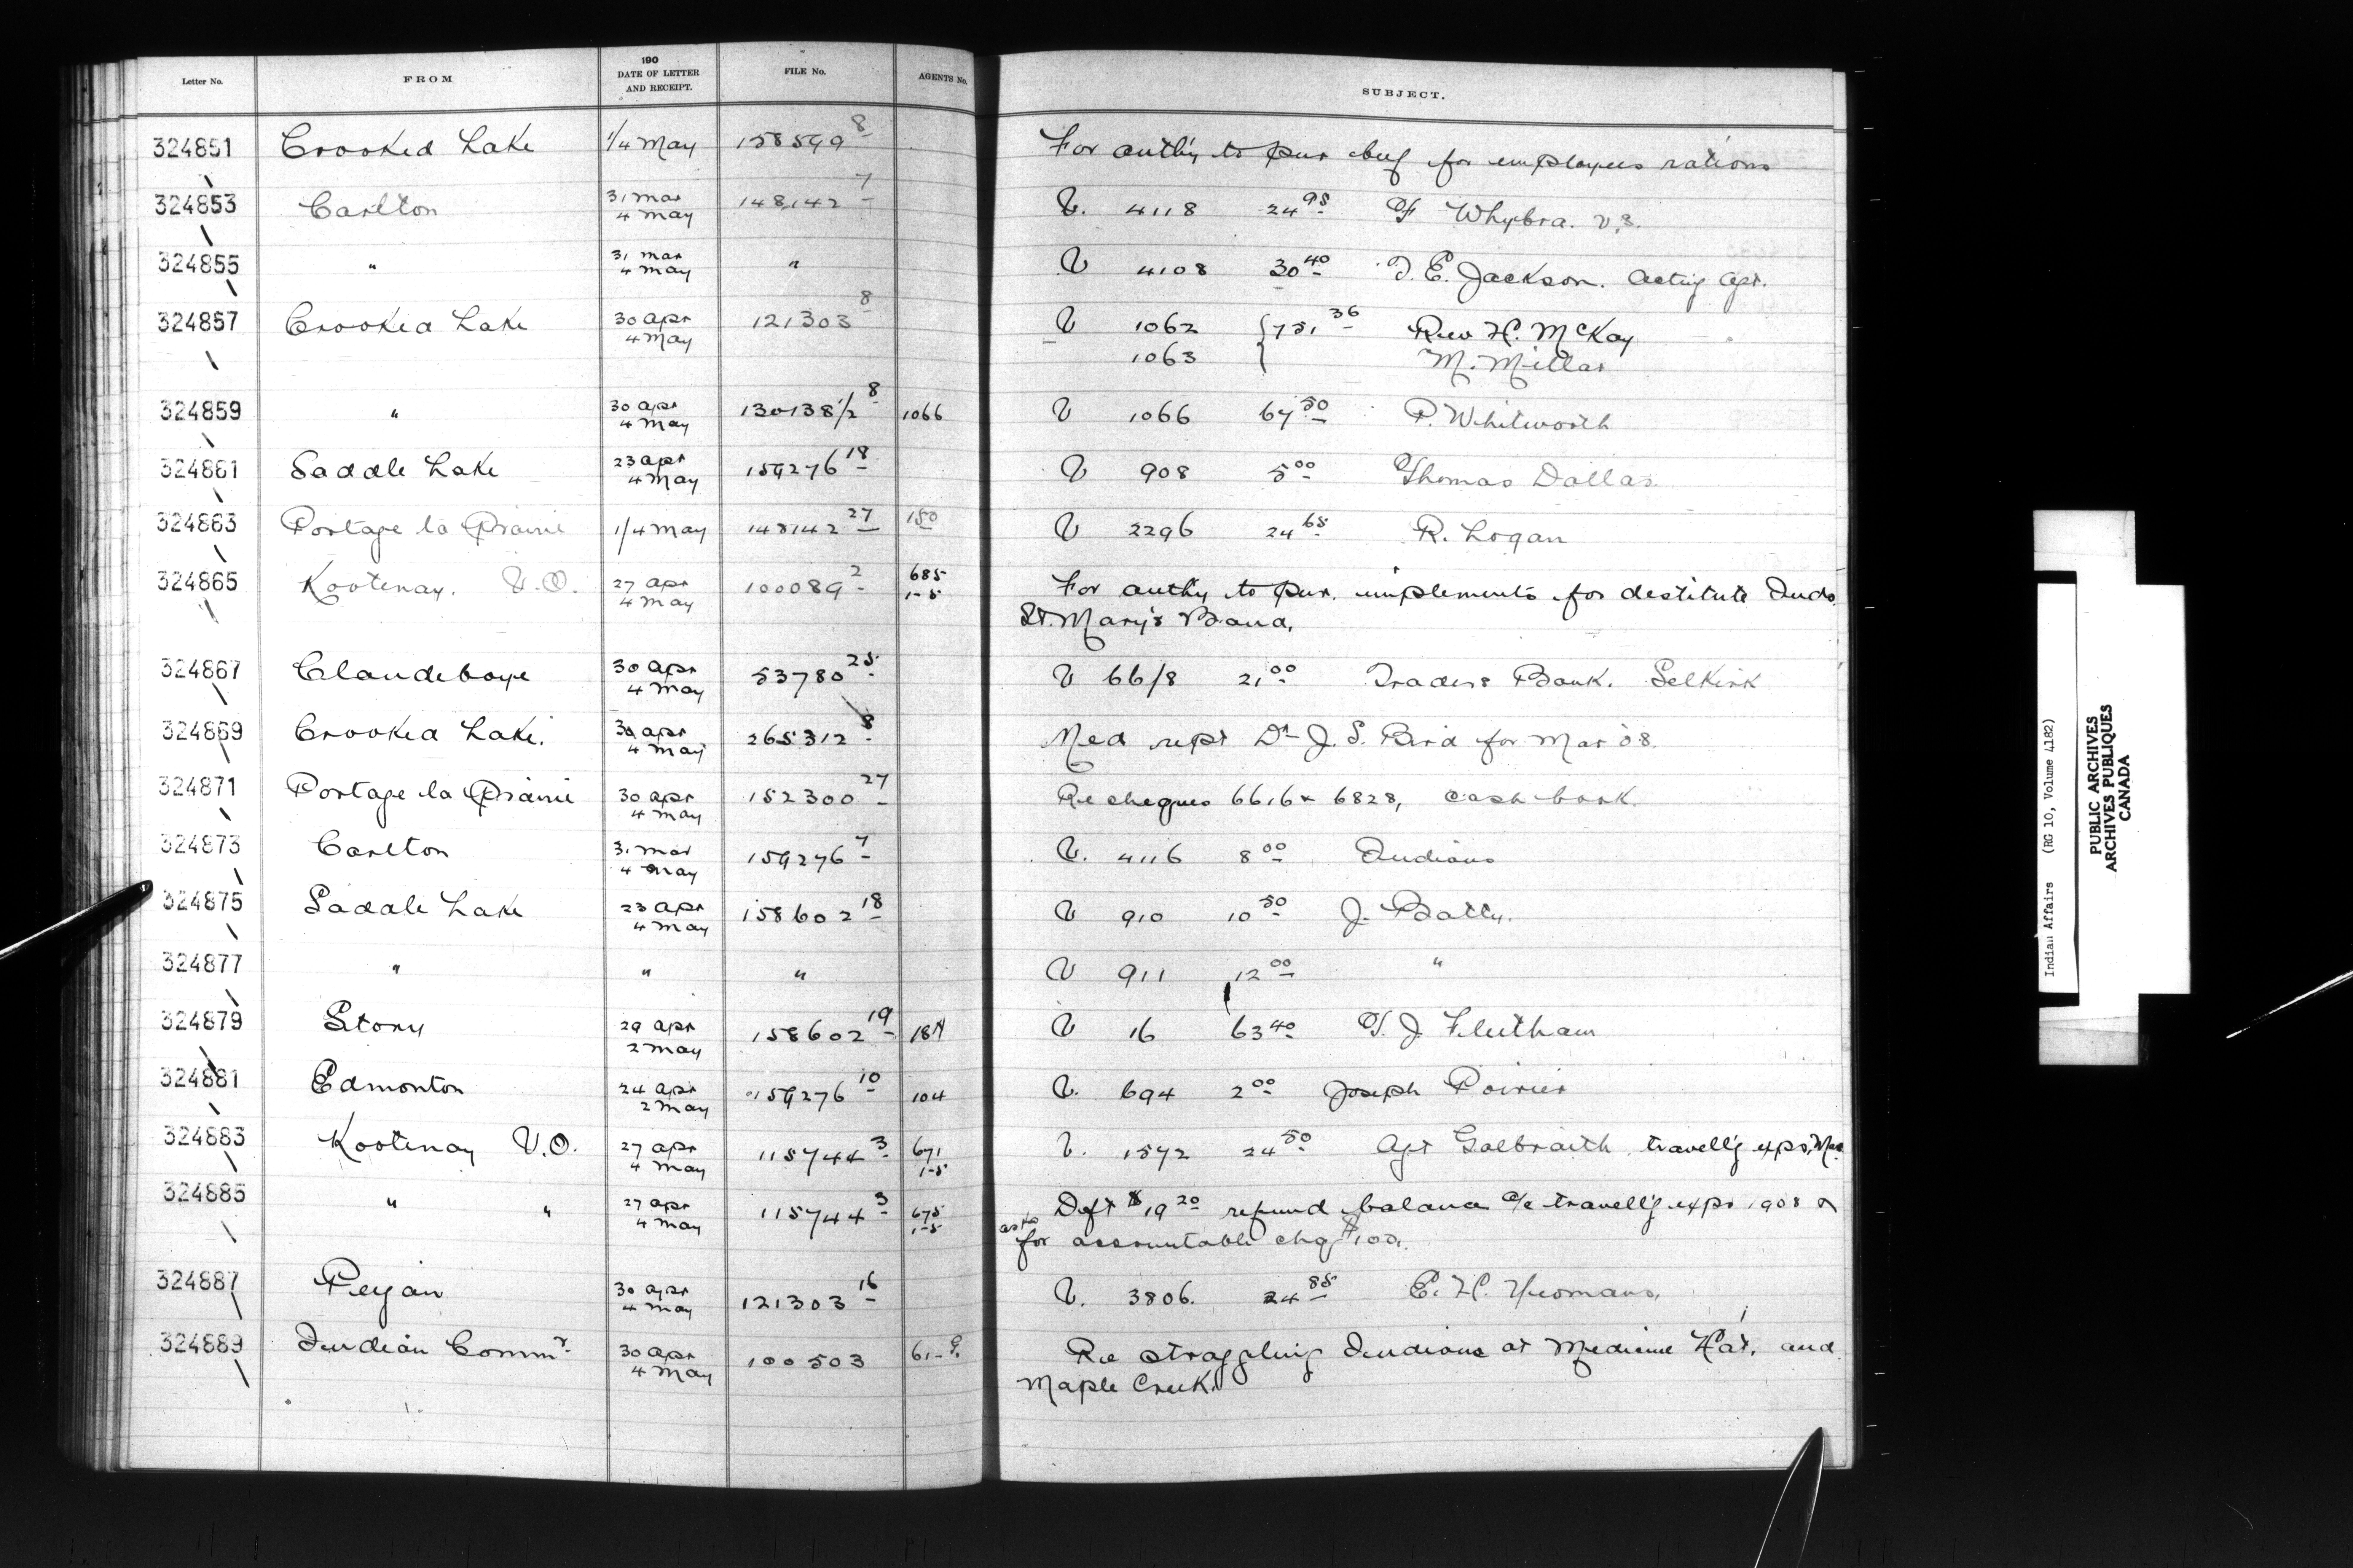 Letter No. FROM 190 DATE OF LETTER AND RECEIPT. FILE No. AGENTS No. SUBJECT.
324851 Crooked Lake 1/4 May 158599 8 For authy to pur beef for employees rations
324853 Carlton 31 Mar 4 May 148142 7 V. 4118 24 95 F Whybra. V.S.
324855 " 31 Mar 4 May " V 4108 30 40 T. E. Jackson. Acting Agt.
324857 Crooked Lake 30 Apr 4 May 121303 8 V 1062 { 751 36 Rev H. McKay
1063 M. Millar
324859 " 30 Apr 4 May 130138 1/2 8 1066 V 1066 67 50 P. Whitworth
324861 Saddle Lake 23 Apr 4 May 159276 18 V 908 5 00 Thomas Dallas
324863 Portage la Prairie 1/4 May 148142 27 150 V 2296 24 65 R. Logan
324865 Kootenay. V.O. 27 Apr 4 May 100089 2 685 1-5 For authy to pur. implements for destitute Inds.
St. Mary's Band.
324867 Clandeboye 30 Apr 4 May 53780 25 V 66/8 21 00 Traders Bank. Selkirk
324869 Crooked Lake. 30 Apr 4 May 265312 8 Med rept Dr J. S. Bird for Mar 08.
324871 Portage la Prairie 30 Apr 4 May 152300 27 Re cheques 6616 & 6828, cash book.
324873 Carlton 31 Mar 4 May 159276 7 V. 4116 8 00 Indians
324875 Saddle Lake 23 Apr 4 May 158602 18 V 910 10 50 J. Batty.
324877 " " " V 911 12 00 "
324879 Stony 29 Apr 2 May 158602 19 V 16 63 40 T. J. Fleetham
324881 Edmonton 24 Apr 2 May 159276 10 104 V. 694 2 00 Joseph Poirier
324883 Kootenay V.O. 27 Apr 4 May 115744 3 671 1-5 V. 1572 24 50 Agt Galbraith travell'g exps, Mar.
324885 " " 27 Apr 4 May 115744 3 675 1-5 Dft $19 20 refund balance a/c travell'g exps 1908 &
as to for accountable chq $100.
324887 Peigan 30 Apr 4 May 121303 16 V. 3806. 24 85 E. H. Yeomans.
324889 Indian Commr. 30 Apr 4 May 100503 Re straggling Indians at Medicine Hat. and
Maple Creek.
Indian Affairs (RG 10, Volume 4182)
PUBLIC ARCHIVES
ARCHIVES PUBLIQUES
CANADA